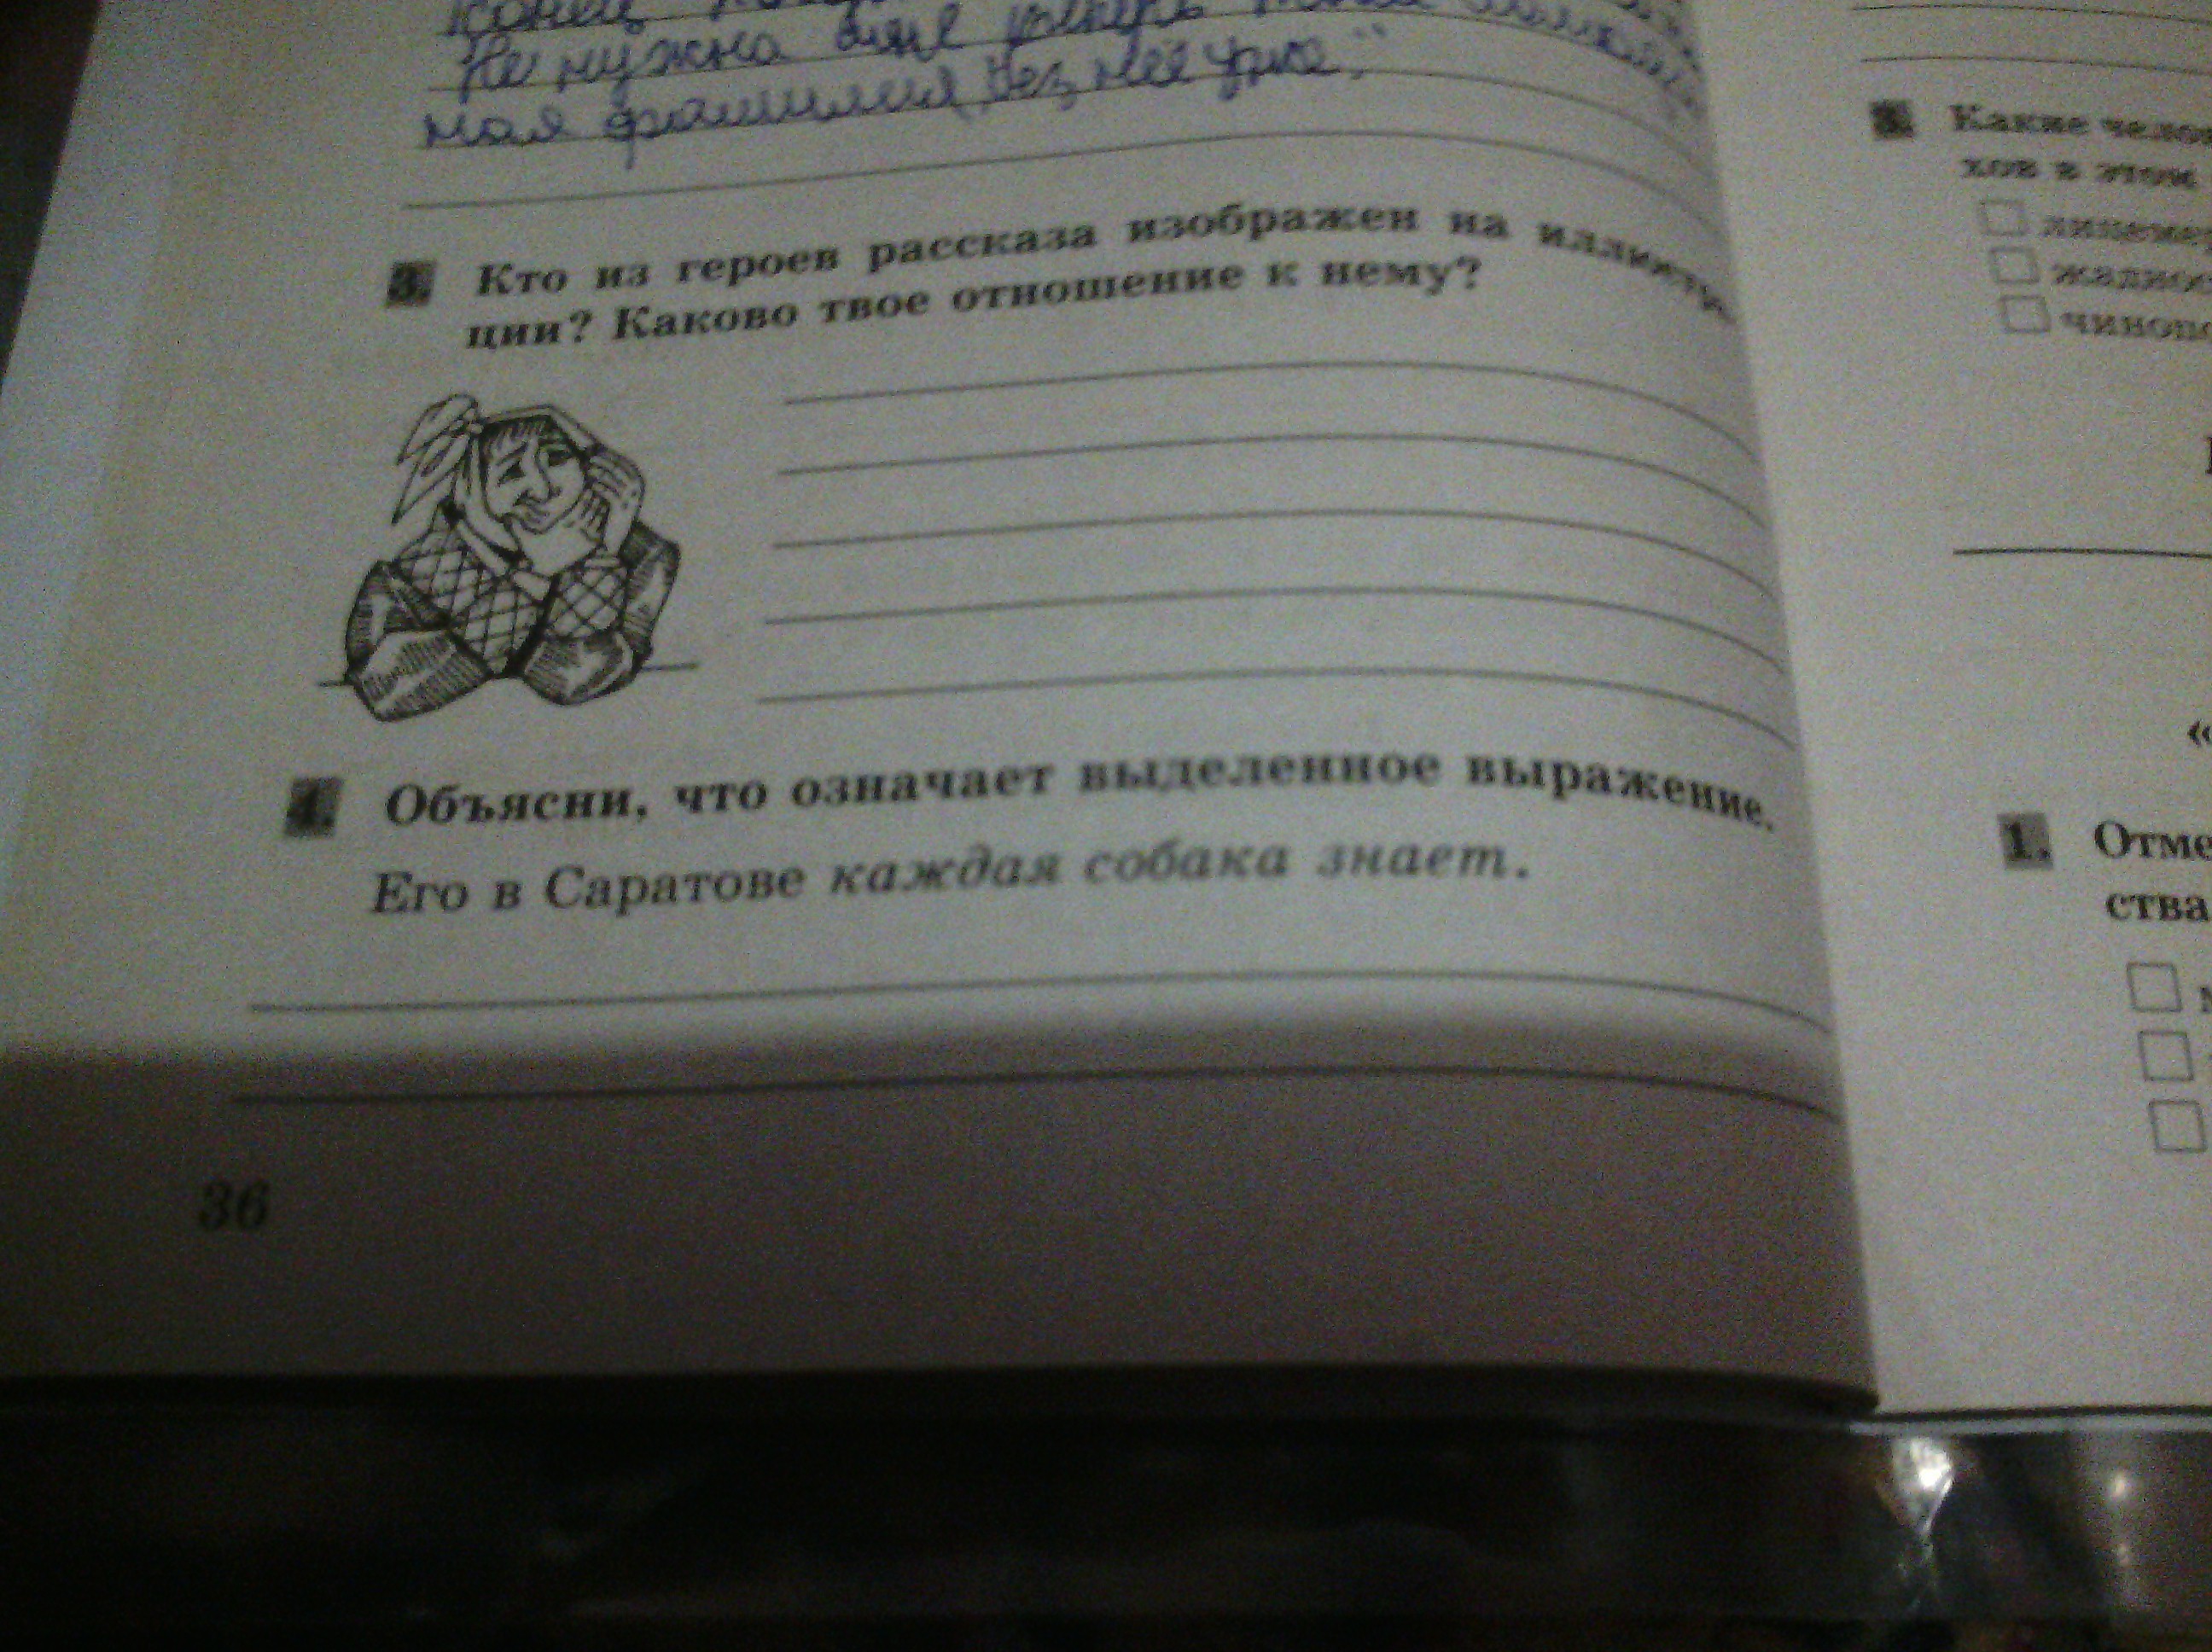 Не нужна мне теперь
моя фамилия, без неё ужо."
3. Кто из героев рассказа изображен на иллюстра-
ции? Каково твое отношение к нему?
4. Объясни, что означает выделенное выражение.
Его в Саратове каждая собака знает.
36
Какие
хов в этом
1. Отме
ства